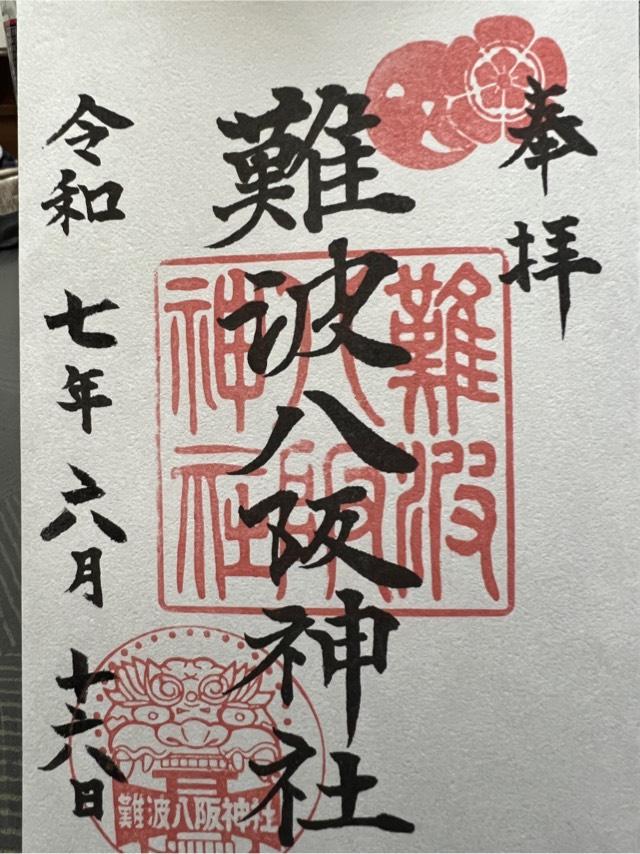 奉拝
難波八阪神社
難波
八阪
神社
令和七年六月十六日
難波八阪神社